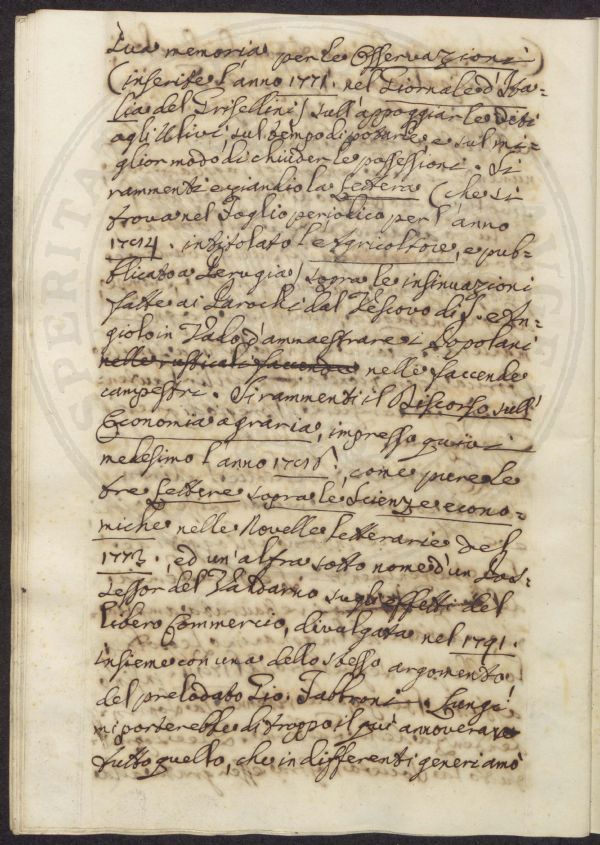 sua memoria per le Osservazioni
(inserite l'anno 1771. nel Giornale d'Ita-
lia del Grisellini) sull'appoggiar le Viti
agli Ulivi, sul tempo di potarle, e sul mi-
glior modo di chiuder le possessioni. Si
rammenti eziandio la Lettera (che si
trova nel Foglio periodico per l'anno
intitolato l'Agricoltore, e pub-
blicato a Perugia) sopra le insinuazioni
fatte ai Parochi dal Vescovo di S. An-
giolo in Vado d'ammaestrare i Popolani
nelle rusticali faccende nelle faccende
campestri. Si rammenti il Discorso sull'
Economia agraria, impresso quivi
medesimo l'anno come pure le
tre Lettere sopra le Scienze econo-
miche nelle Novelle Letterarie del
1773., ed un'altra sotto nome d'un Pos-
sessor del Valdarno sugli effetti del
libero Commercio, divulgata nel 1791.
insieme con una dello stesso argomento
del prelodato Gio. Fabbroni. Lungi
mi porterebbe di troppo il più annoverar
tutto quello, che in differenti generi amò